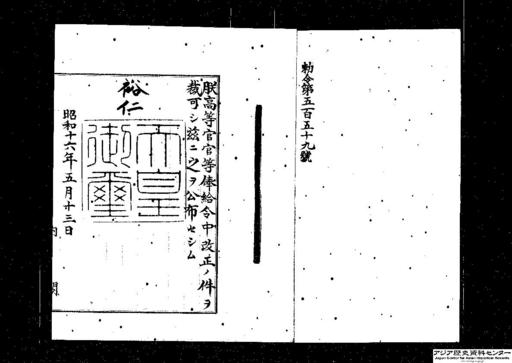 勅令第五百五十九號
朕高等官官等俸給令中改正ノ件ヲ
裁可シ茲ニ之ヲ公布セシム
裕仁
天皇
御璽
昭和十六年五月十三日
内閣
アジア歴史資料センター
Japan Center for Asian Historical Records